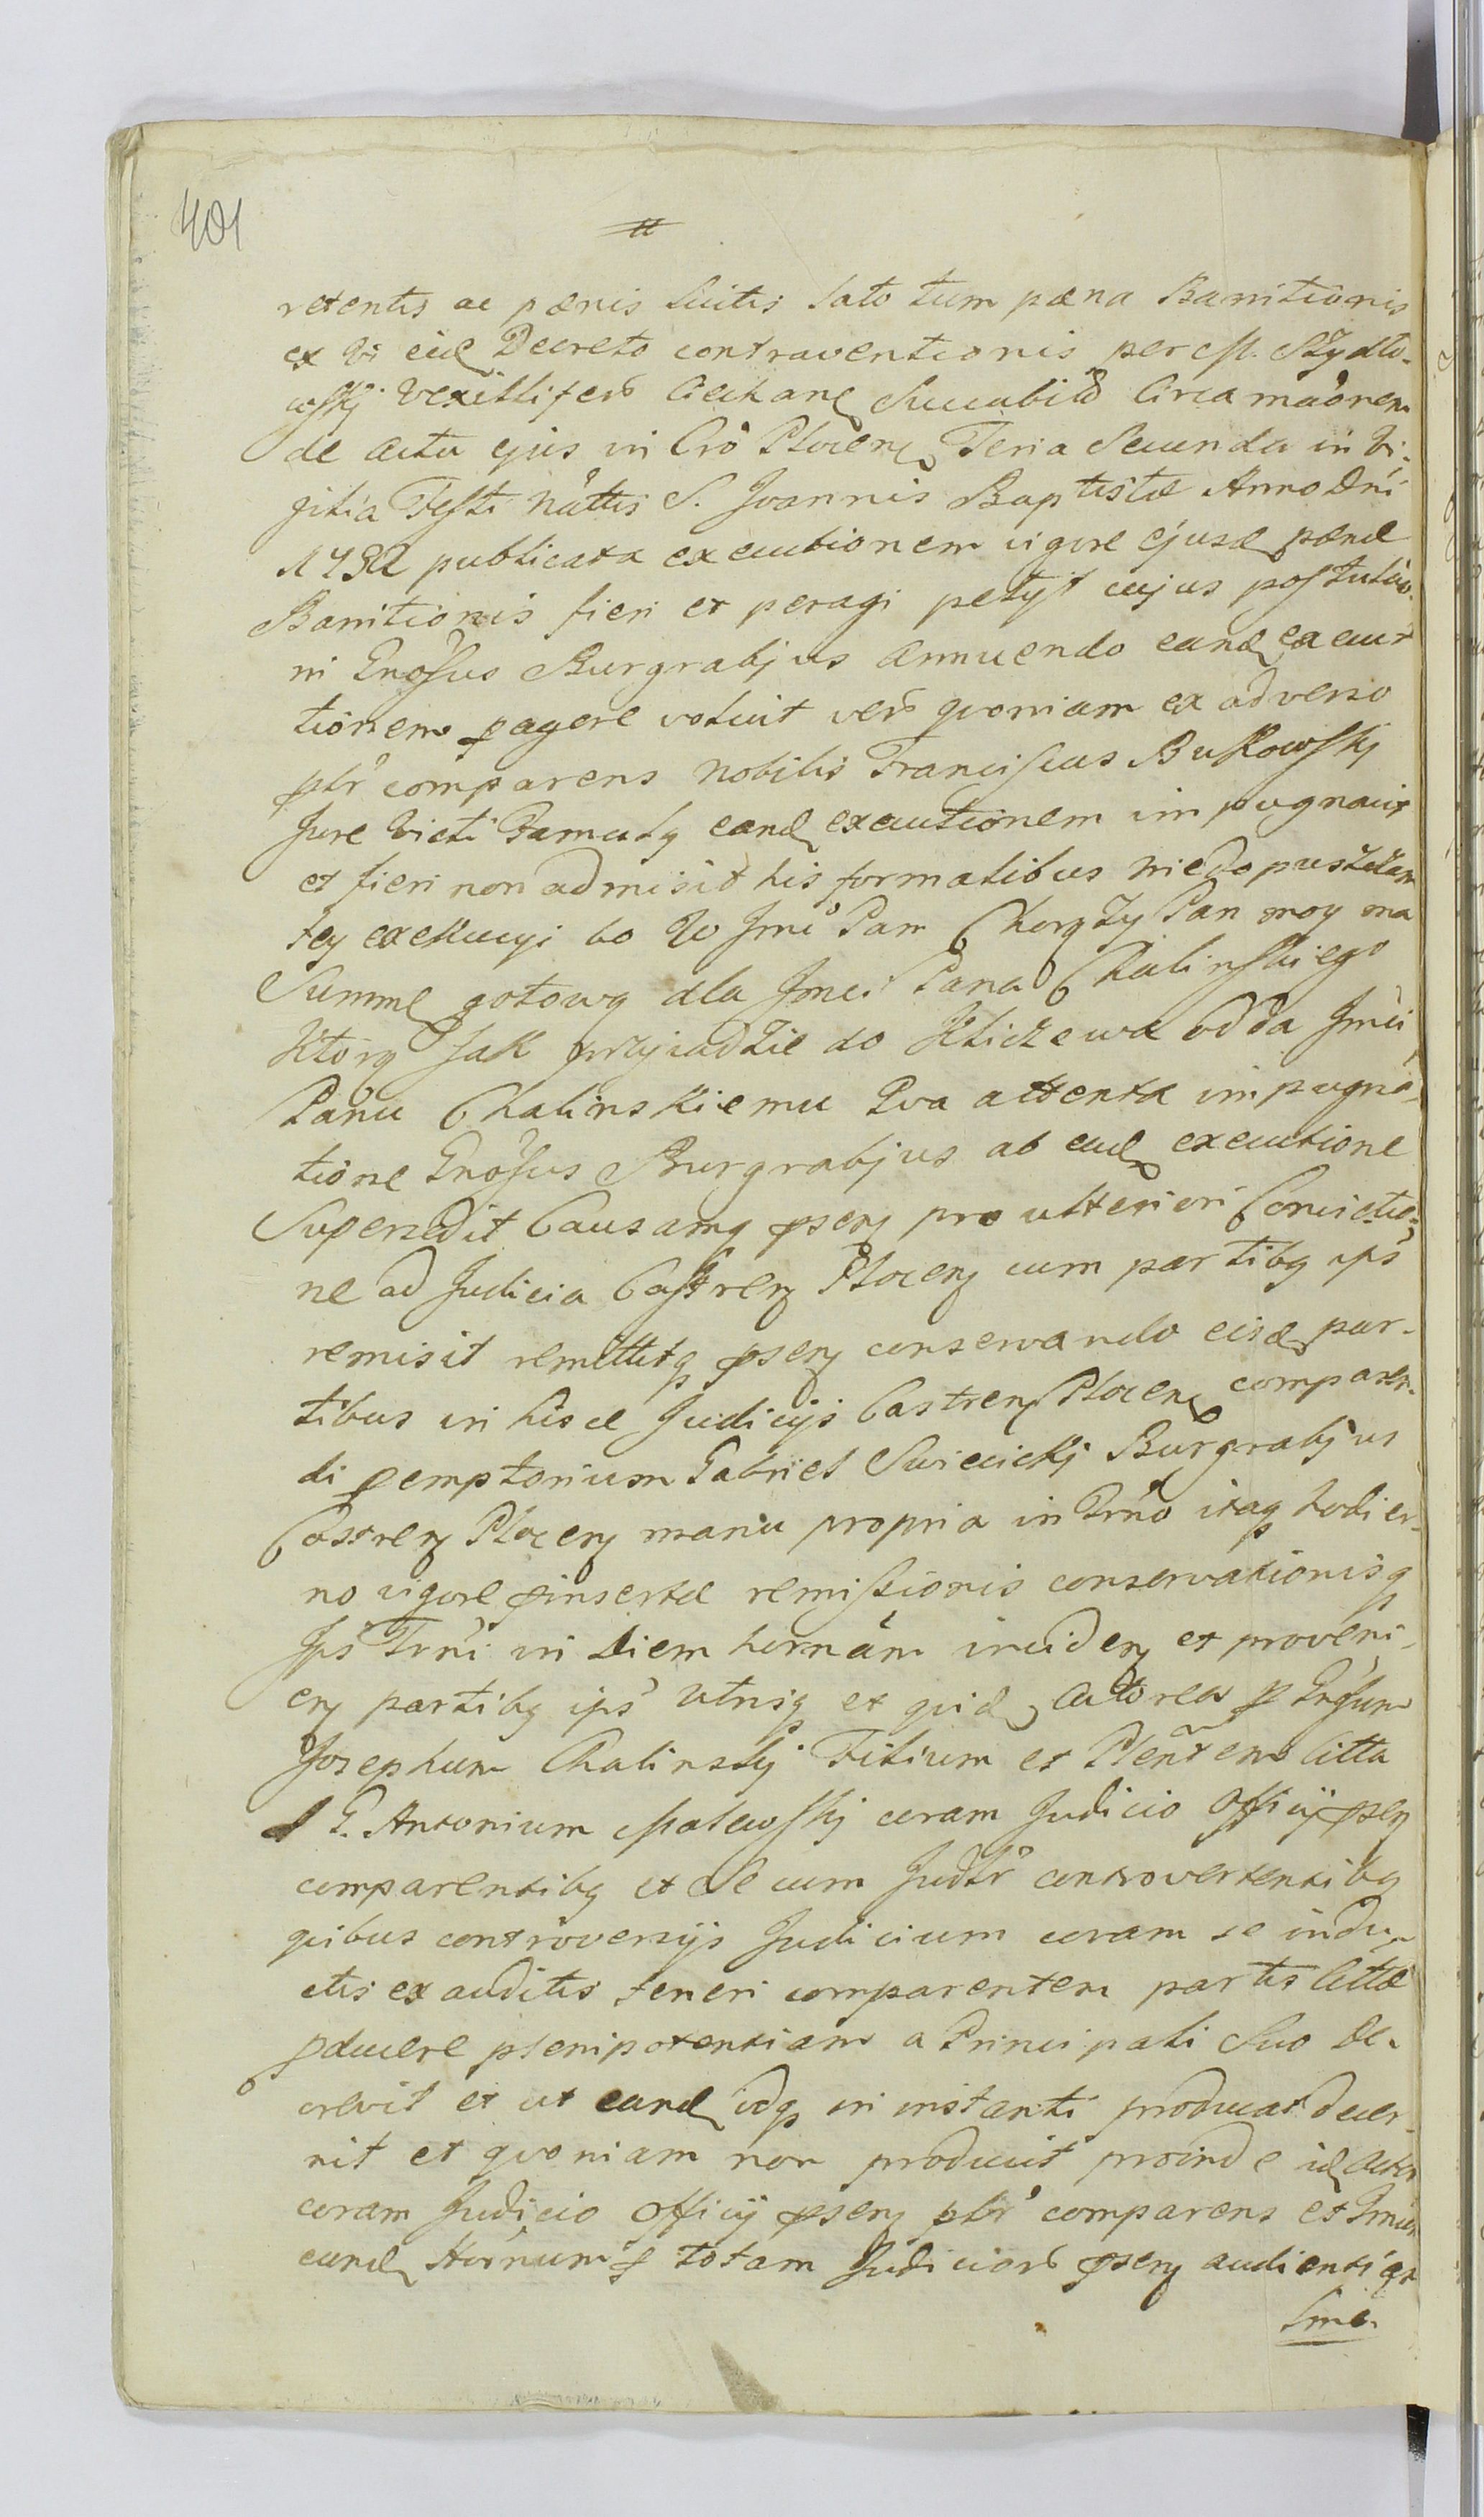 401
#
retentis ac pænis luitis lato tum pæna Banitionis
ex vi eid Decreto contraventionis per M. Szydło-
wskj Vexilliferũ Ciechanẽ Succubitũ Circa maõnem
de actu ejus in Crõ Plocen Feria Secunda in Vi-
gilia Festi Nãttis S. Joannis Baptistæ Anno Dni
1732 publicata executionem vigore ejusd pænæ
Banitionis fieri et peragi petyt cujus postulãõ-
ni Gnõsus Burgrabjus annuendo eand execut
tionem pagere voluit verũ qvoniam ex adverso
pbr comparens nobilis Franciscus Bukowskj
Jure Victi Famulq eand executionem impugnavit
et fieri non admisit his formalibus niedopuszczam
tey exekucyi bo W Jmc Pan Chorąży Pan moy ma
Summę gotową dla Jmci Pana Chalinskiego
Którą Jak przyiadzie do Kliczewa odda Jmci
Panu Chalinskiemu Qva attenta impugna-
tione Gnõsus Burgrabjus ab ead executione
Supersedit Causamq psen pro ulteriori Convictio-
ne ad Judicia Castren Plocen cum partibq ips
remisit remittitq psen conservando eisd par-
tibus in hisce Judicijs Castren Plocen comparen-
di pemptorium Gabriel Swiecickj Burgrabjus
Castren Plocen manu propria in Trno itaq hodier-
no vigore pinsertæ remissionis conservationisq
Jps Trni in Diem hornam inciden et proveni-
en partibq ips utrisq et quid Actorea p Gnsum
Josephum Chalinskj Filium et Plentem Citta
p G. Antonium Malewskj coram Judicio Officij psen
comparentibq et Se cum Judtr controvertentibq
quibus controversijs Judicium coram se indu-
ctis ex auditis teneri comparentem partis Cittæ
pducere plenipotentiam a Principali Suo De-
crevit et ut eand idq in instanti producat decer-
nit et qvoniam non producit proinde id Actor
coram Judicio Officij psen pbr comparens et Trmin
eund Hornum p totam Judiciorũ psen audientiam